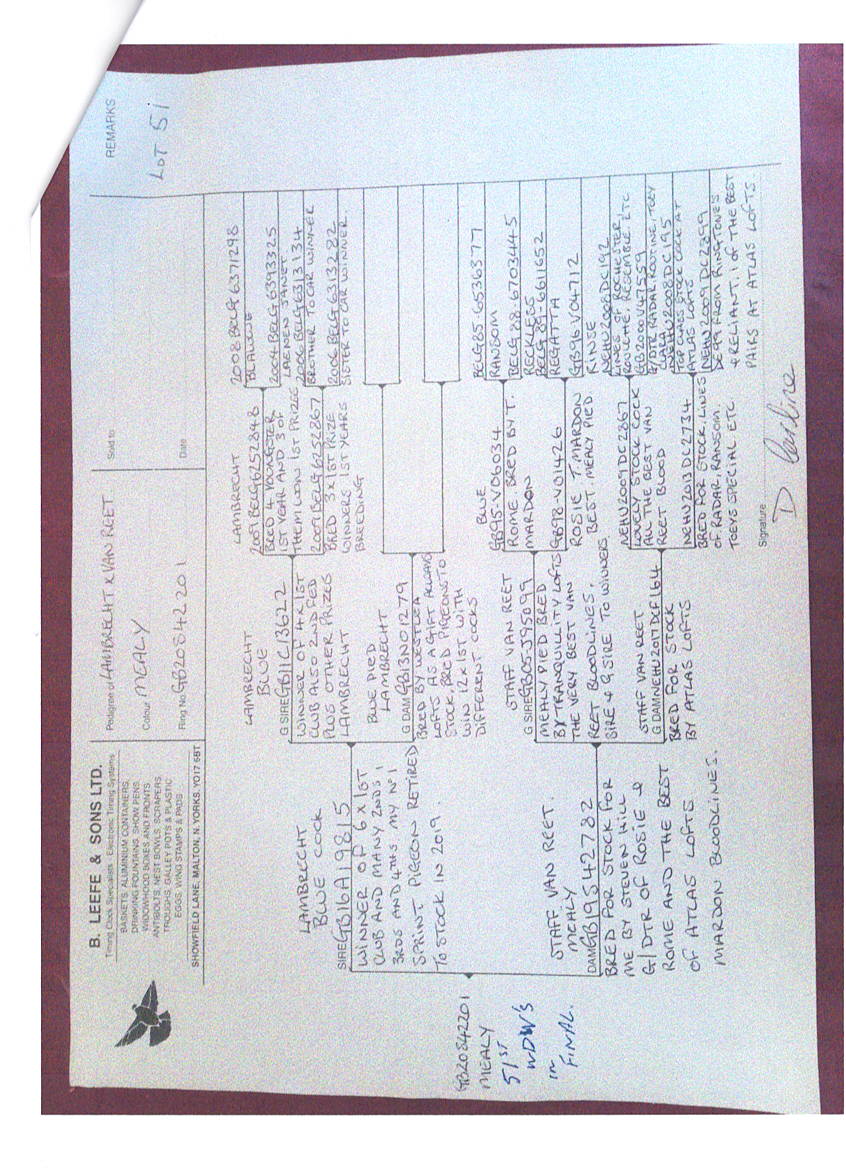 B. LEEFE & SONS LTD.
Timing Clock Specialists - Electronic Timing Systems
BASKETS, ALUMINIUM CONTAINERS,
DRINKING FOUNTAINS, SHOW PENS,
WIDOWHOOD BOXES AND FRONTS
ANTIBOLTS, NEST BOWLS, SCRAPERS,
TROUGHS, GALLEY POTS & PLASTIC
EGGS, WING STAMPS & PADS
SHOWFIELD LANE, MALTON, N. YORKS. YO17 6BT
Pedigree of LAMBRECHT x VAN REET
Colour MEALY
Ring No GB20S42201
Sold to
Date
REMARKS
LOT 51
GB20S42201
MEALY
51ST
WDW'S
IN
FINAL.
LAMBRECHT
BLUE COCK
SIRE GB16A19815
WINNER OF 6 X 1ST
CLUB AND MANY 2NDS,
3RDS AND 4THS. MY No 1
SPRINT PIGEON RETIRED
TO STOCK IN 2019.
STAFF VAN REET.
MEALY
DAM GB19S42782
BRED FOR STOCK FOR
ME BY STEVEN HILL
G/DTR OF ROSIE &
ROME AND THE BEST
OF ATLAS LOFTS
MARDON BLOODLINES.
LAMBRECHT
BLUE
G.SIRE GB11C13622
WINNER OF 4 X 1ST
CLUB ALSO 2ND FED
PLUS OTHER PRIZES
LAMBRECHT
BLUE PIED
LAMBRECHT
G.DAM GB13N01279
BRED BY WESTLEA
LOFTS AS A GIFT ALWAYS
STOCK, BRED PIGEONS TO
WIN 12 X 1ST WITH
DIFFERENT COCKS
STAFF VAN REET
G.SIRE GB05J95099
MEALY PIED BRED
BY TRANQUILLITY LOFTS
THE VERY BEST VAN
REET BLOODLINES.
SIRE & G.SIRE TO WINNERS
STAFF VAN REET
G.DAM NEHU2017DCF164
BRED FOR STOCK
BY ATLAS LOFTS
LAMBRECHT
2007BELG6252848
BRED 4 YOUNGSTER
1ST YEAR AND 3 OF
THEM WON 1ST PRIZES
2007BELG6252867
BRED 3 X 1ST PRIZE
WINNERS 1ST YEARS
BREEDING
BLUE
GB95-V06034
ROME. BRED BY T.
MARDON
GB98-V01426
ROSIE T. MARDON
BEST MEALY PIED.
NEHU2009DC2867
LOVELY STOCK COCK
ALL THE BEST VAN
REET BLOOD
NEHU2013DC2734
BRED FOR STOCK. LINES
OF RADAR, RANSOM,
TOEYS SPECIAL ETC.
2008BELG6371298
BLAUWE
2004BELG6393325
LAENEN JANET
2006BELG6313134
BROTHER TO CAR WINNER
2006BELG6313282
SISTER TO CAR WINNER.
BELG85-6536377
RANSOM
BELG88-6703445
RECKLESS
BELG89-6611652
REGATTA
GB96V04712
RINSE
NEHU2008DC192
LINES OF ROCHESTER,
ROULETTE, RESEMBLE ETC
GB2000V47559
G/DTR RADAR, ROUTINE, TOEY
NEHU2008DC195
TOP CLASS STOCK COCK AT
ATLAS LOFTS
NEHU2009DC2899
DE99 FROM RINGTONE'S
& RELIANT. 1 OF THE BEST
PAIRS AT ATLAS LOFTS.
Signature